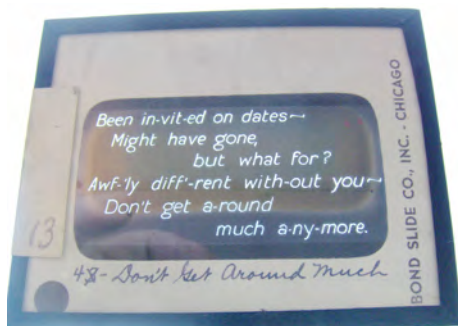 Been in-vit-ed on dates~
Might have gone,
but what for?
Awf-'ly diff'-rent with-out you~
Don't get a-round
much a-ny-more.
13
Don't Get Around Much
BOND SLIDE CO., INC. - CHICAGO